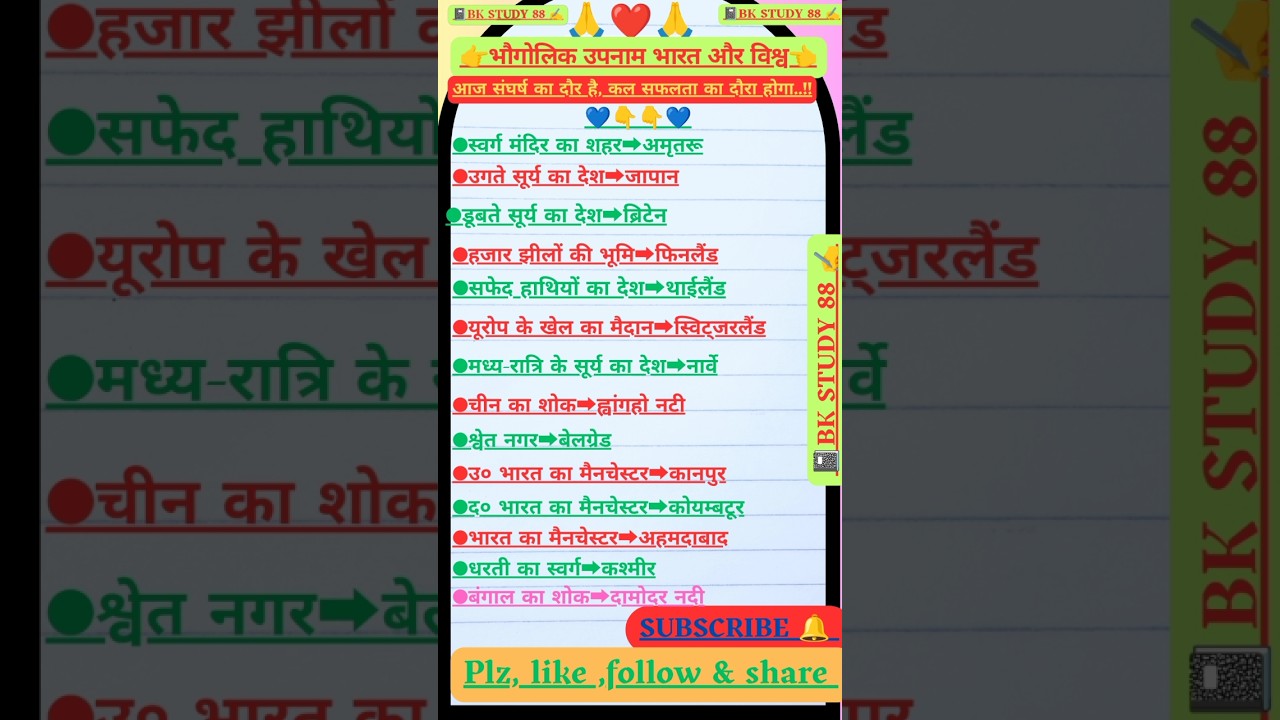 BK STUDY 88
BK STUDY 88
भौगोलिक उपनाम भारत और विश्व
आज संघर्ष का दौर है, कल सफलता का दौरा होगा..!!
●स्वर्ग मंदिर का शहर➡अमृतरू
●उगते सूर्य का देश➡जापान
●डूबते सूर्य का देश➡ब्रिटेन
●हजार झीलों की भूमि➡फिनलैंड
●सफेद हाथियों का देश➡थाईलैंड
●यूरोप के खेल का मैदान➡स्विट्जरलैंड
●मध्य-रात्रि के सूर्य का देश➡नार्वे
●चीन का शोक➡ह्वांगहो नटी
●श्वेत नगर➡बेलग्रेड
●उ० भारत का मैनचेस्टर➡कानपुर
●द० भारत का मैनचेस्टर➡कोयम्बटूर
●भारत का मैनचेस्टर➡अहमदाबाद
●धरती का स्वर्ग➡कश्मीर
●बंगाल का शोक➡दामोदर नदी
BK STUDY 88
SUBSCRIBE
Plz, like ,follow & share
●हजार झीलों
●सफेद हाथियो
लैंड
●यूरोप के खेल
ट्जरलैंड
●मध्य-रात्रि के
र्वे
●चीन का शोक
●श्वेत नगर➡बे
BK STUDY 88